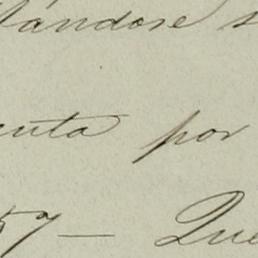 tándose s
enta por
57 — Que